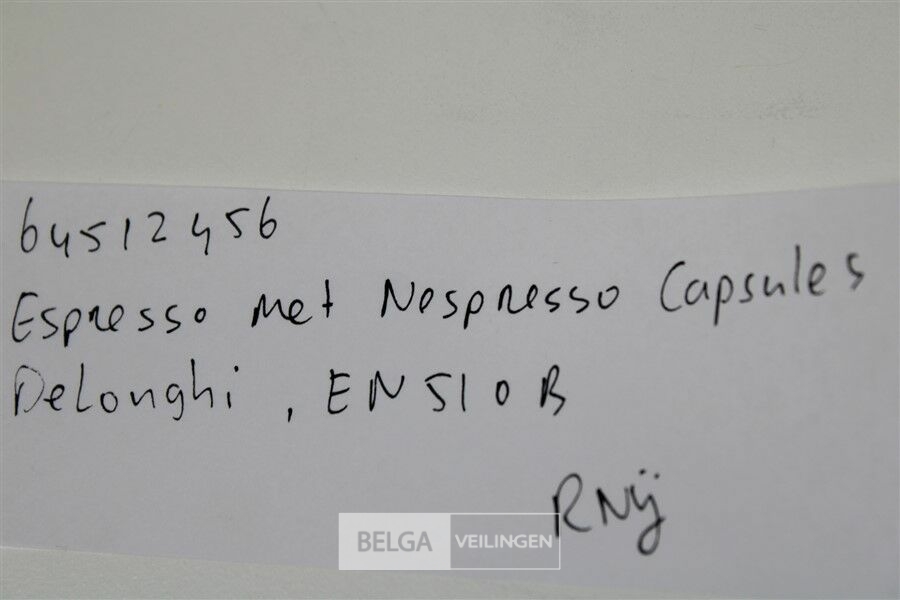 64512456
Espresso met Nespresso Capsules
DeLonghi, EN510B
RNij
BELGA VEILINGEN